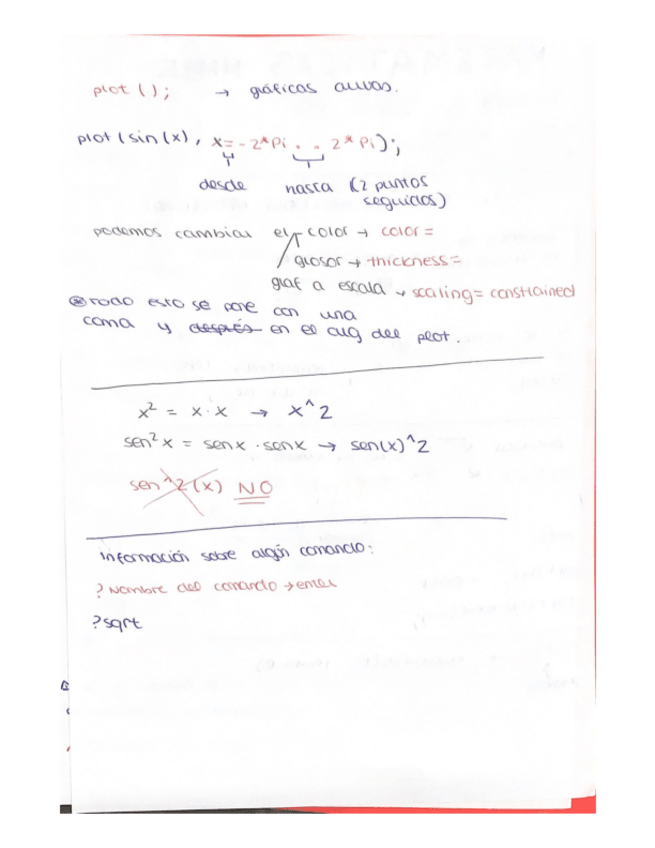 plot ( ); → gráficas curvas.
plot (sin (x), x = - 2*Pi . . 2* Pi);
desde hasta (2 puntos
seguidos)
podemos cambiar el color → color =
grosor → thickness =
graf a escala → scaling = constrained
⊛ Todo esto se pone con una
coma y después en el arg del plot.
x² = x · x → x^2
sen² x = senx · senx → sen(x)^2
sen^2 (x) NO
Información sobre algún comando:
? Nombre del comando → enter
? sqrt